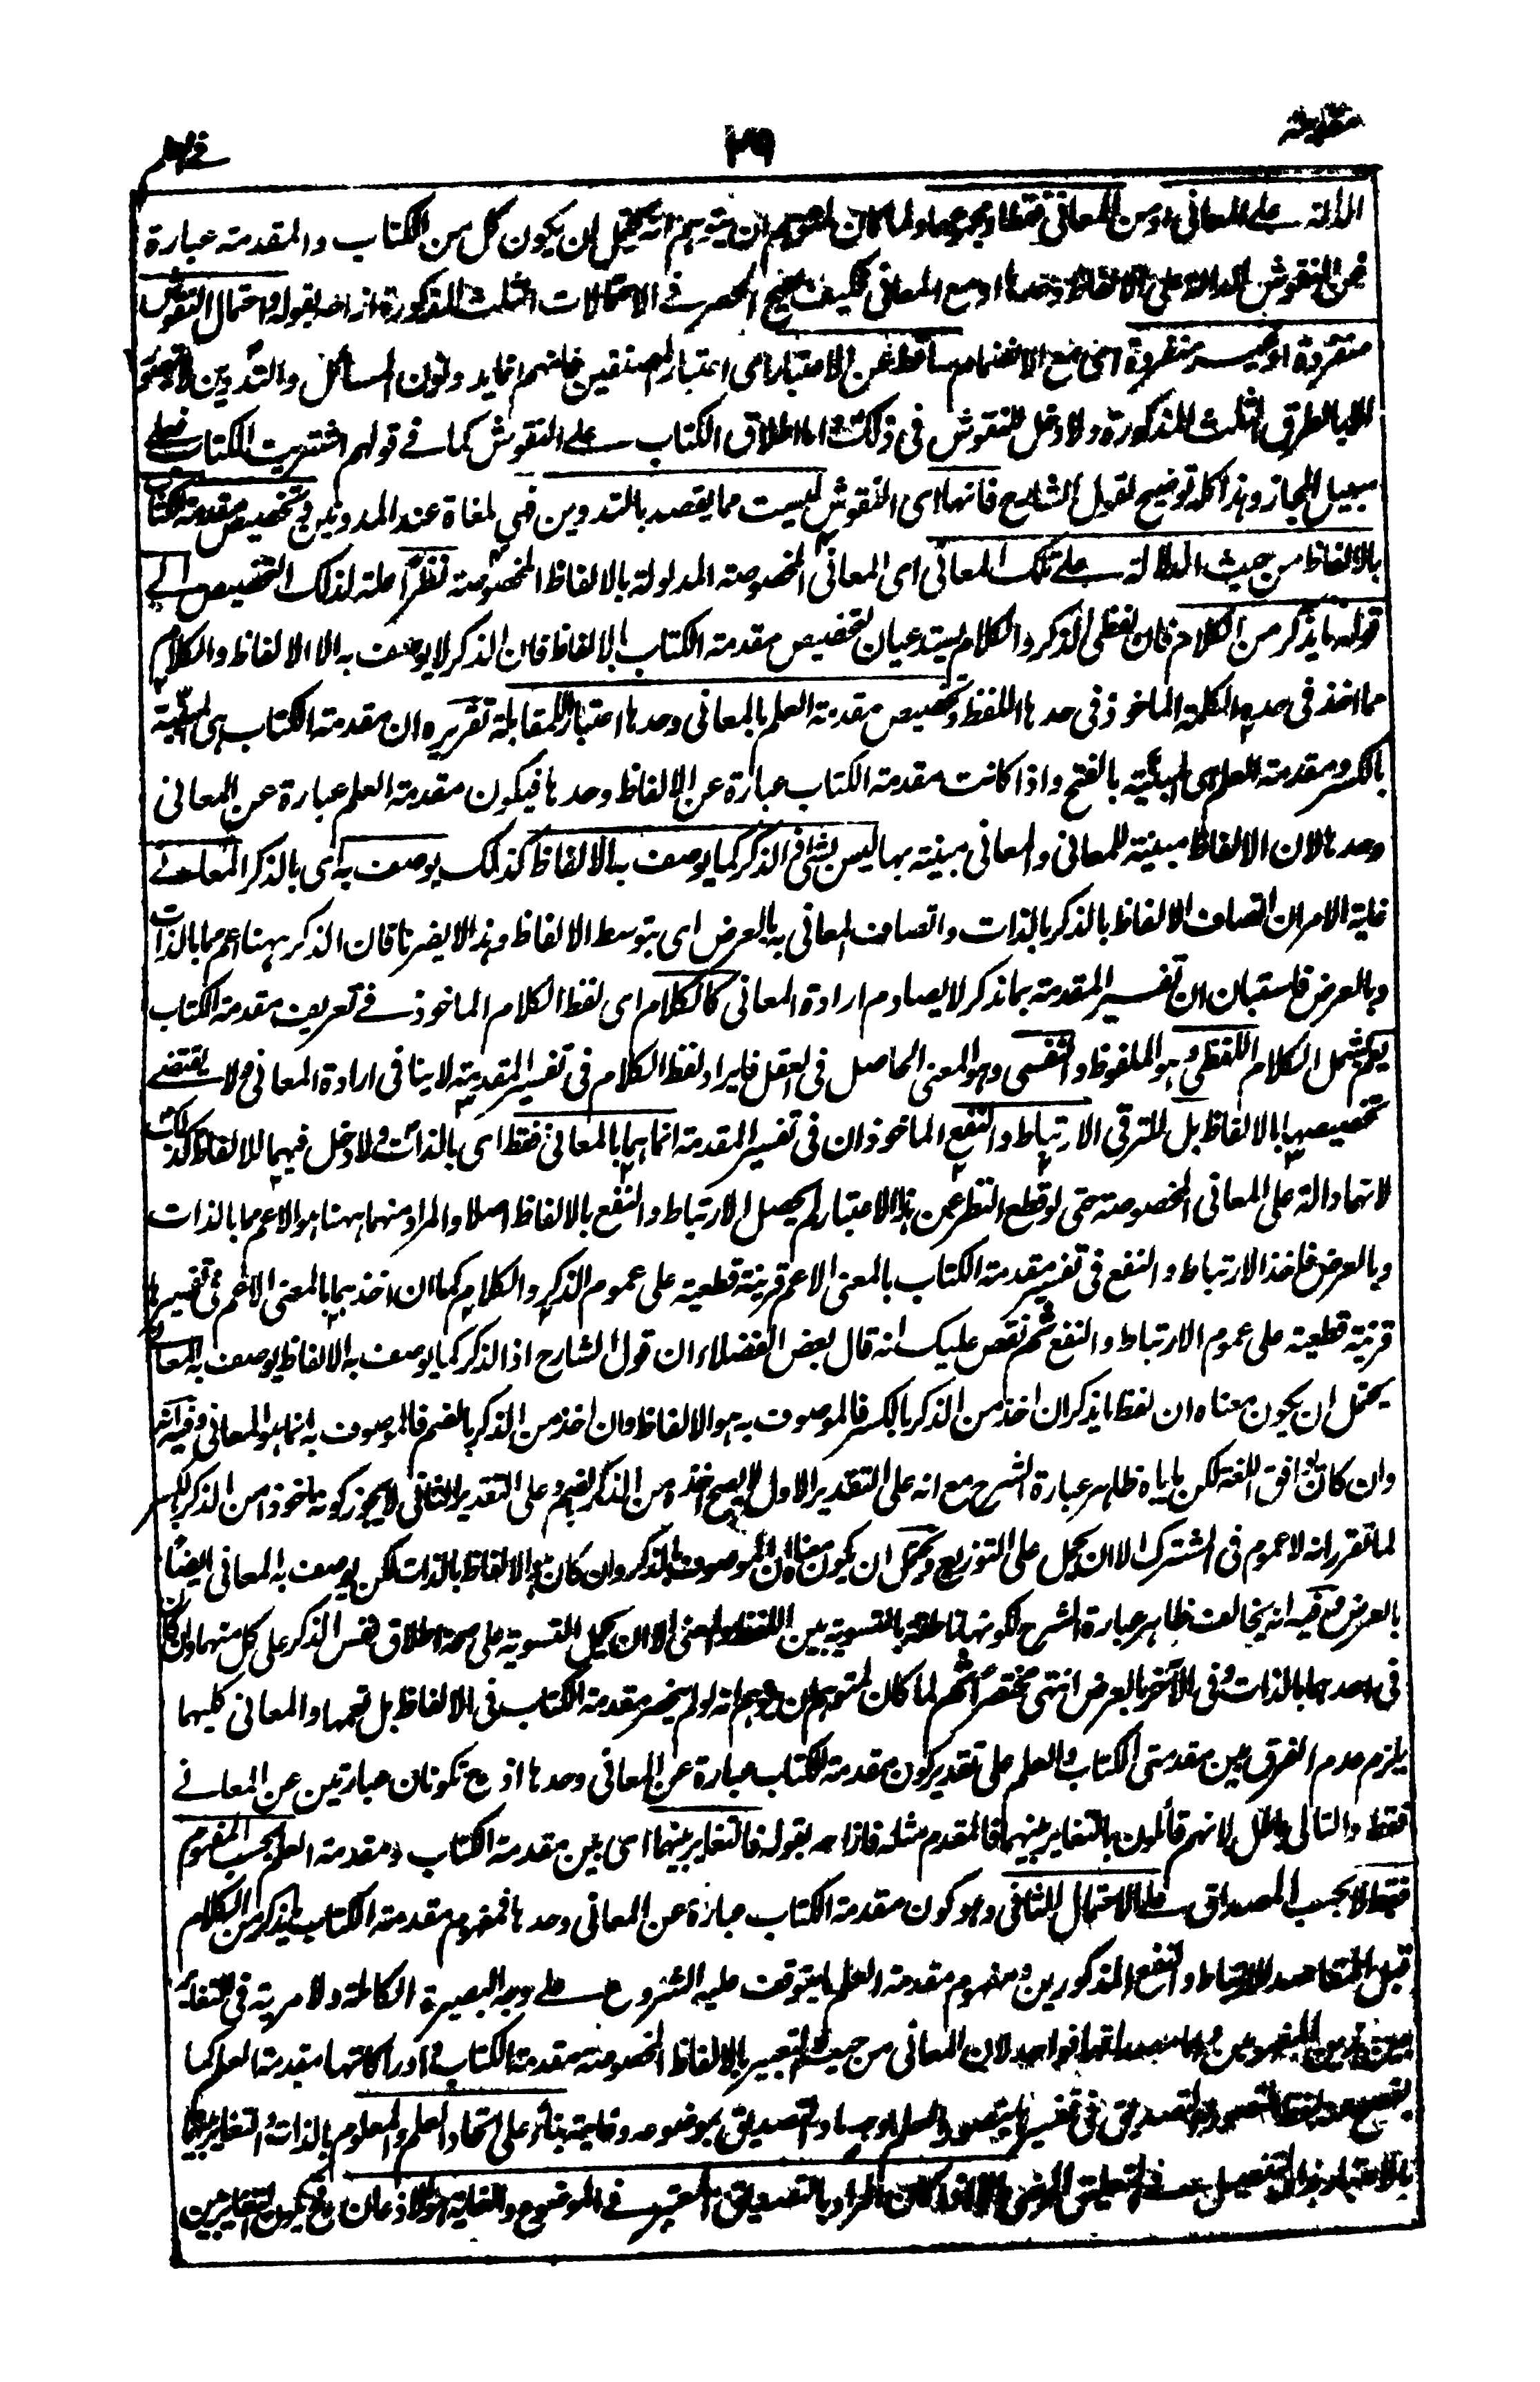 مقدمة
٣٩
الدالة على المعانى او من المعانى فقط او مجموعهما ولما كان لمتوهم ان يتوهم انه يحتمل ان يكون كل من الكتاب والمقدمة عبارة
عن النقوش الدالة على الالفاظ وحدها او مع المعانى فكيف يصح الحصر فى الاحتمالات الثلث المذكورة ازاحه بقوله واحتمال النقوش
منفردة او غير منفردة اى مع الانضمام ساقط عن الاعتبار اى اعتبار المصنفين فانهم انما يدونون المسائل والتدوين لا يتصور
الا بالطرق الثلث المذكورة ولا دخل للنقوش فى ذلك اما اطلاق الكتاب على النقوش كما فى قولهم اشتريت الكتاب فعلى
سبيل المجاز وهذا كله توضيح لقول الشارح فانها اى النقوش ليست مما يقصد بالتدوين فهى ملغاة عند المدونين وتخصيص مقدمة الكتاب
بالالفاظ من حيث الدلالة على تلك المعانى اى المعانى المخصوصة المدلولة بالالفاظ المخصوصة نظرًا علة لذلك التخصيص الى
قوله ما يذكر من الكلام فان لفظى الذكر والكلام يستدعيان تخصيص مقدمة الكتاب بالالفاظ فان الذكر لا يوصف به الا الالفاظ والكلام
مما اخذ فى حده الكلمة الماخوذ فى حدها اللفظ وتخصيص مقدمة العلم بالمعانى وحدها اعتبارًا للمقابلة تقريره ان مقدمة الكتاب هى المبينة
بالكسر ومقدمة العلم هى المبينة بالفتح واذا كانت مقدمة الكتاب عبارة عن الالفاظ وحدها فيكون مقدمة العلم عبارة عن المعانى
وحدها لان الالفاظ مبينة للمعانى والمعانى مبينة بها ليس بشئ اذ الذكر كما يوصف به الالفاظ كذلك يوصف به اى بالذكر المعانى
غاية الامر ان اتصاف الالفاظ بالذكر بالذات واتصاف المعانى به بالعرض اى بتوسط الالفاظ وهذا لا يضرنا فان الذكر ههنا اعم مما بالذات
وبالعرض فاستبان ان تفسير المقدمة بما يذكر لا يصادم ارادة المعانى كالكلام اى لفظ الكلام الماخوذ فى تعريف مقدمة الكتاب
يعم يشمل الكلام اللفظى وهو الملفوظ والنفسى وهو المعنى الحاصل فى العقل فايراد لفظ الكلام فى تفسير المقدمة لا ينافى ارادة المعانى ولا يقتضى
تخصيصها بالالفاظ بل للترقى الارتباط والنفع الماخوذان فى تفسير المقدمة انما هما بالمعانى فقط اى بالذات ولا دخل فيهما للالفاظ كذلك
لانها دالة على المعانى المخصوصة حتى لو قطع النظر عن هذا الاعتبار لم يحصل الارتباط والنفع بالالفاظ اصلا والمراد منهما ههنا هو الاعم مما بالذات
وبالعرض فاخذ الارتباط والنفع فى تفسير مقدمة الكتاب بالمعنى الاعم قرينة قطعية على عموم الذكر والكلام كما ان اخذهما بالمعنى الاعم فى تفسيرها
قرينة قطعية على عموم الارتباط والنفع ثم نقص عليك انه قال بعض الفضلاء ان قول الشارح اذ الذكر كما يوصف به الالفاظ يوصف به المعانى
يحتمل ان يكون معناه ان لفظ يذكر ان اخذ من الذكر بالكسر فالموصوف به هو الالفاظ وان اخذ من الذكر بالضم فالموصوف به انما هو المعانى وفيه انه
وان كان يوافق اللغة لكن ياباه ظاهر عبارة الشرح مع انه على التقدير الاول لا يصح اخذه من الذكر بالضم وعلى التقدير الثانى لا يجوز كونه ماخوذا من الذكر بالكسر
لما تقرر انه لا عموم فى المشترك الا ان يحمل على التوزيع ويحتمل ان يكون معناه ان الموصوف بالذكر وان كان هو الالفاظ بالذات لكن يوصف به المعانى ايضًا
بالعرض وفيه انه يخالف ظاهر عبارة الشرح لكونها ناطقة بالتسوية بين اللفظ والمعنى الا ان يحمل التسوية على صحة اطلاق نفس الذكر على كل منهما وان كان
فى احدهما بالذات وفى الآخر بالعرض انتهى مختصرًا ثم لما كان لمتوهم ان يتوهم انه لو لم ينحصر مقدمة الكتاب فى الالفاظ بل تعمها والمعانى كليهما
يلزم عدم الفرق بين مقدمتى الكتاب والعلم على تقدير كون مقدمة الكتاب عبارة عن المعانى وحدها اذ ح تكونان عبارتين عن المعانى
فقط والتالى باطل لانهم قائلون بالتغاير بينهما فالمقدم مثله فازاحه بقوله فالتغاير بينهما اى بين مقدمة الكتاب ومقدمة العلم بحسب المفهوم
فقط لا بحسب المصداق على الاحتمال الثانى وهو كون مقدمة الكتاب عبارة عن المعانى وحدها فمفهوم مقدمة الكتاب ما يذكر من الكلام
قبل المقاصد للارتباط والنفع المذكورين ومفهوم مقدمة العلم ما يتوقف عليه الشروع على وجه البصيرة الكاملة ولا مرية فى التغاير
بين هذين المفهومين واما مصداقهما فواحد لان المعانى من حيث التعبير بالالفاظ المخصوصة مقدمة الكتاب وادراكاتها مقدمة العلم كما
يفصح عنه لفظ التصور والتصديق فى تفسير ما بتصور العلم بوجه ما والتصديق بموضوعه وغايته بناء على اتحاد العلم والمعلوم بالذات والتغاير بينهما
بالاعتبار هذا التفصيل فى التعليق المرضى كان المراد بالتصديق المعتبر فى الموضوع والغاية هو الاذعان